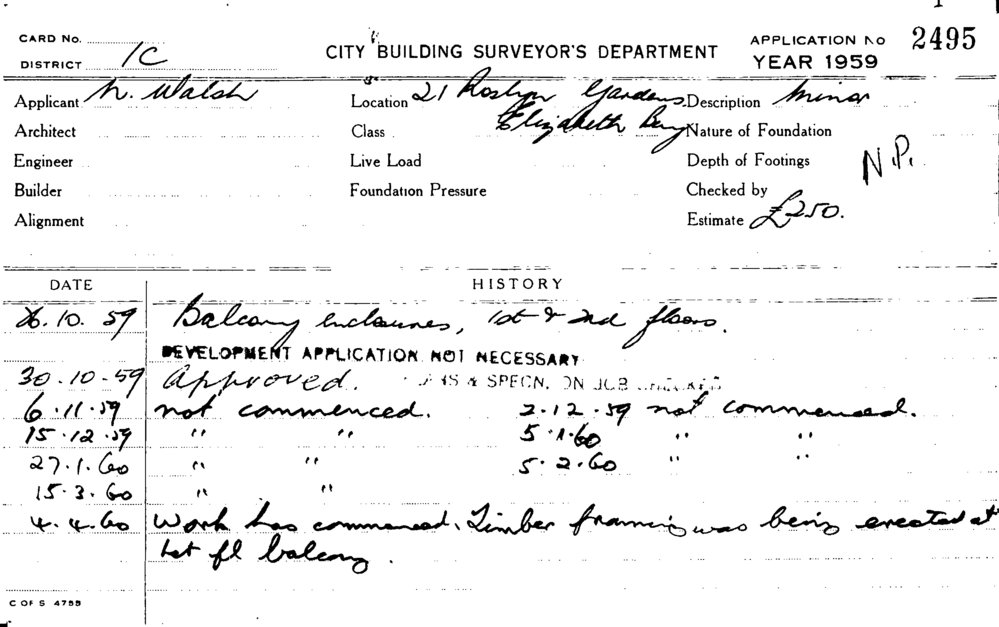 CARD No.
DISTRICT 1C
CITY BUILDING SURVEYOR'S DEPARTMENT
APPLICATION No 2495
YEAR 1959
Applicant N. Walsh
Location 21 Roslyn Gardens
Description Minor
Architect
Class Elizabeth Bay
Nature of Foundation
Engineer
Live Load
Depth of Footings N.P.
Builder
Foundation Pressure
Checked by
Alignment
Estimate £250.
DATE HISTORY
26.10.59 Balcony enclosures, 1st & 2nd floors.
DEVELOPMENT APPLICATION NOT NECESSARY
30.10.59 Approved. & SPECN. ON JOB CHECKED
6.11.59 not commenced. 2.12.59 not commenced.
15.12.59 " " 5.1.60 " "
27.1.60 " " 5.2.60 " "
15.3.60 " "
4.4.60 Work has commenced. Timber framing was being erected at
1st fl balcony.
C OF S 4755